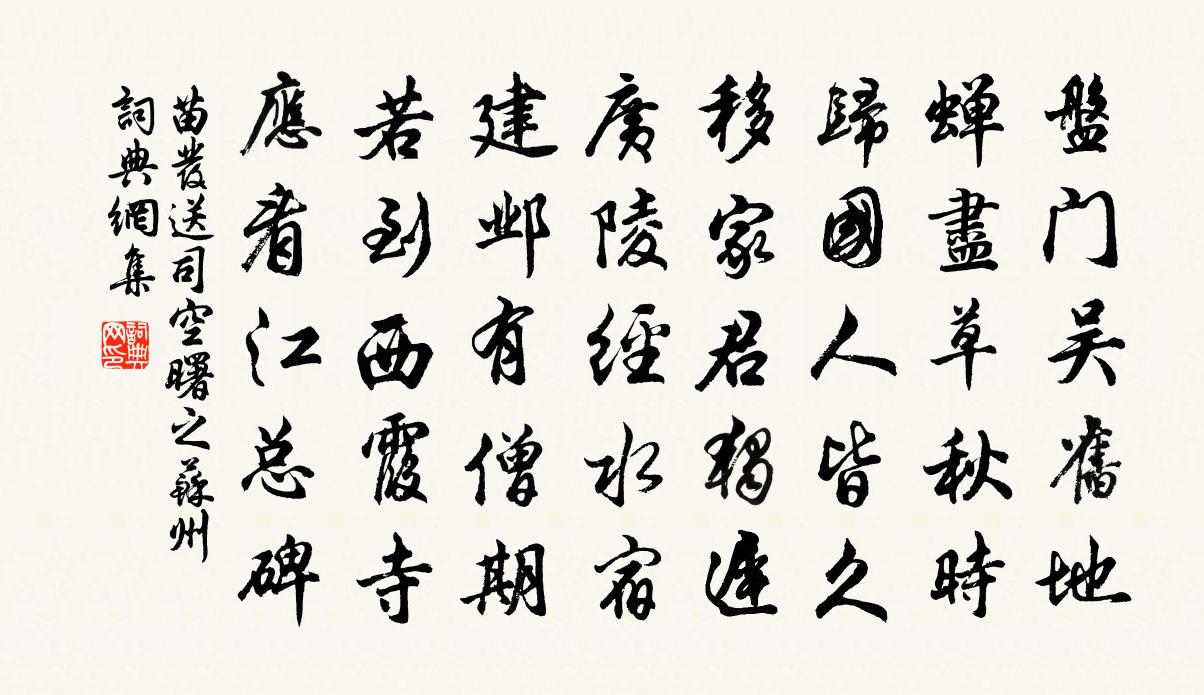 盤门吴舊地
蝉盡草秋時
歸國人皆久
移家君獨遲
廣陵經水宿
建邺有僧期
若到西霞寺
應看江总碑
苗發送司空曙之蘇州
詞典網集
詞典网印